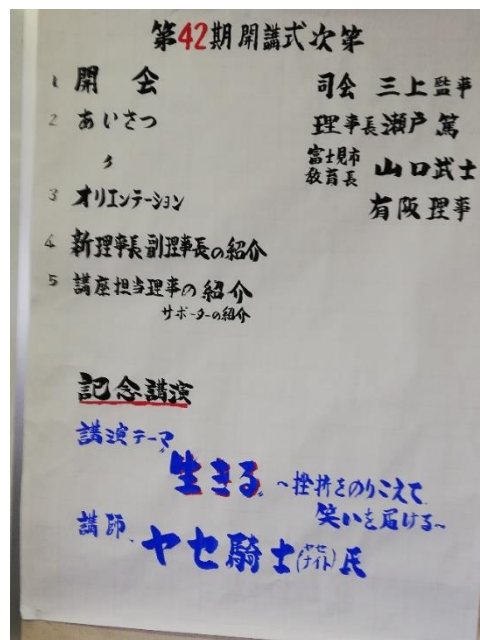 第42期開講式次第
1 開会 司会 三上監事
2 あいさつ 理事長 瀬戸 篤
〃 富士見市教育長 山口武士
3 オリエンテーション 有阪理事
4 新理事長副理事長の紹介
5 講座担当理事の紹介
サポーターの紹介
記念講演
講演テーマ
生きる ~挫折をのりこえて
笑いを届ける~
講師 ヤセ騎士(ヤセナイト)氏